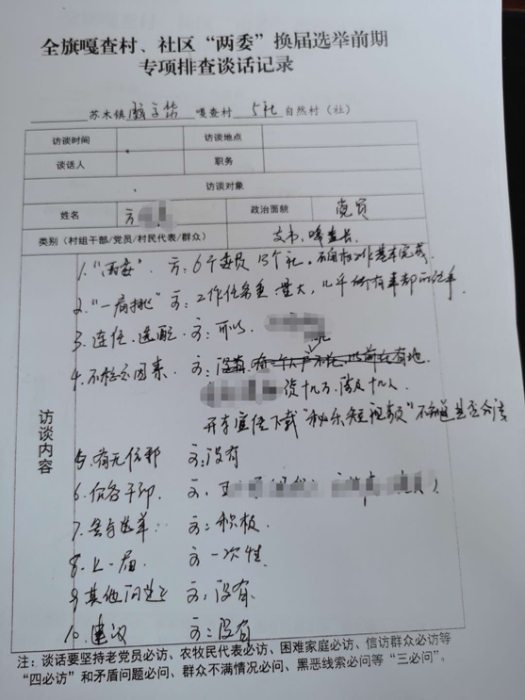 全旗嘎查村、社区“两委”换届选举前期
专项排查谈话记录
苏木镇 嘎查村 5社 自然村（社）
访谈时间 访谈地点
谈话人 职务
访谈对象
姓名 方 政治面貌 党员
类别（村组干部/党员/村民代表/群众） 支书、嘎查长
访谈内容
1. “两委”. 方: 6个委员 13个社.
2. “一肩挑” 方: 工作任务重 量大,
3. 连任、选配 方: 可以.
4. 不稳定因素. 方: 没有
资十几万. 涉及十几人
下载“秘乐短视频” 不知道是否合法
5. 有无信邪 方: 没有
6. 价各干部.
7. 参与选举: 方: 积极.
8. 上一届. 方 一次性.
9 其他问题 方: 没有.
10. 建议 方: 没有
注：谈话要坚持老党员必访、农牧民代表必访、困难家庭必访、信访群众必访等
“四必访”和矛盾问题必问、群众不满情况必问、黑恶线索必问等“三必问”。